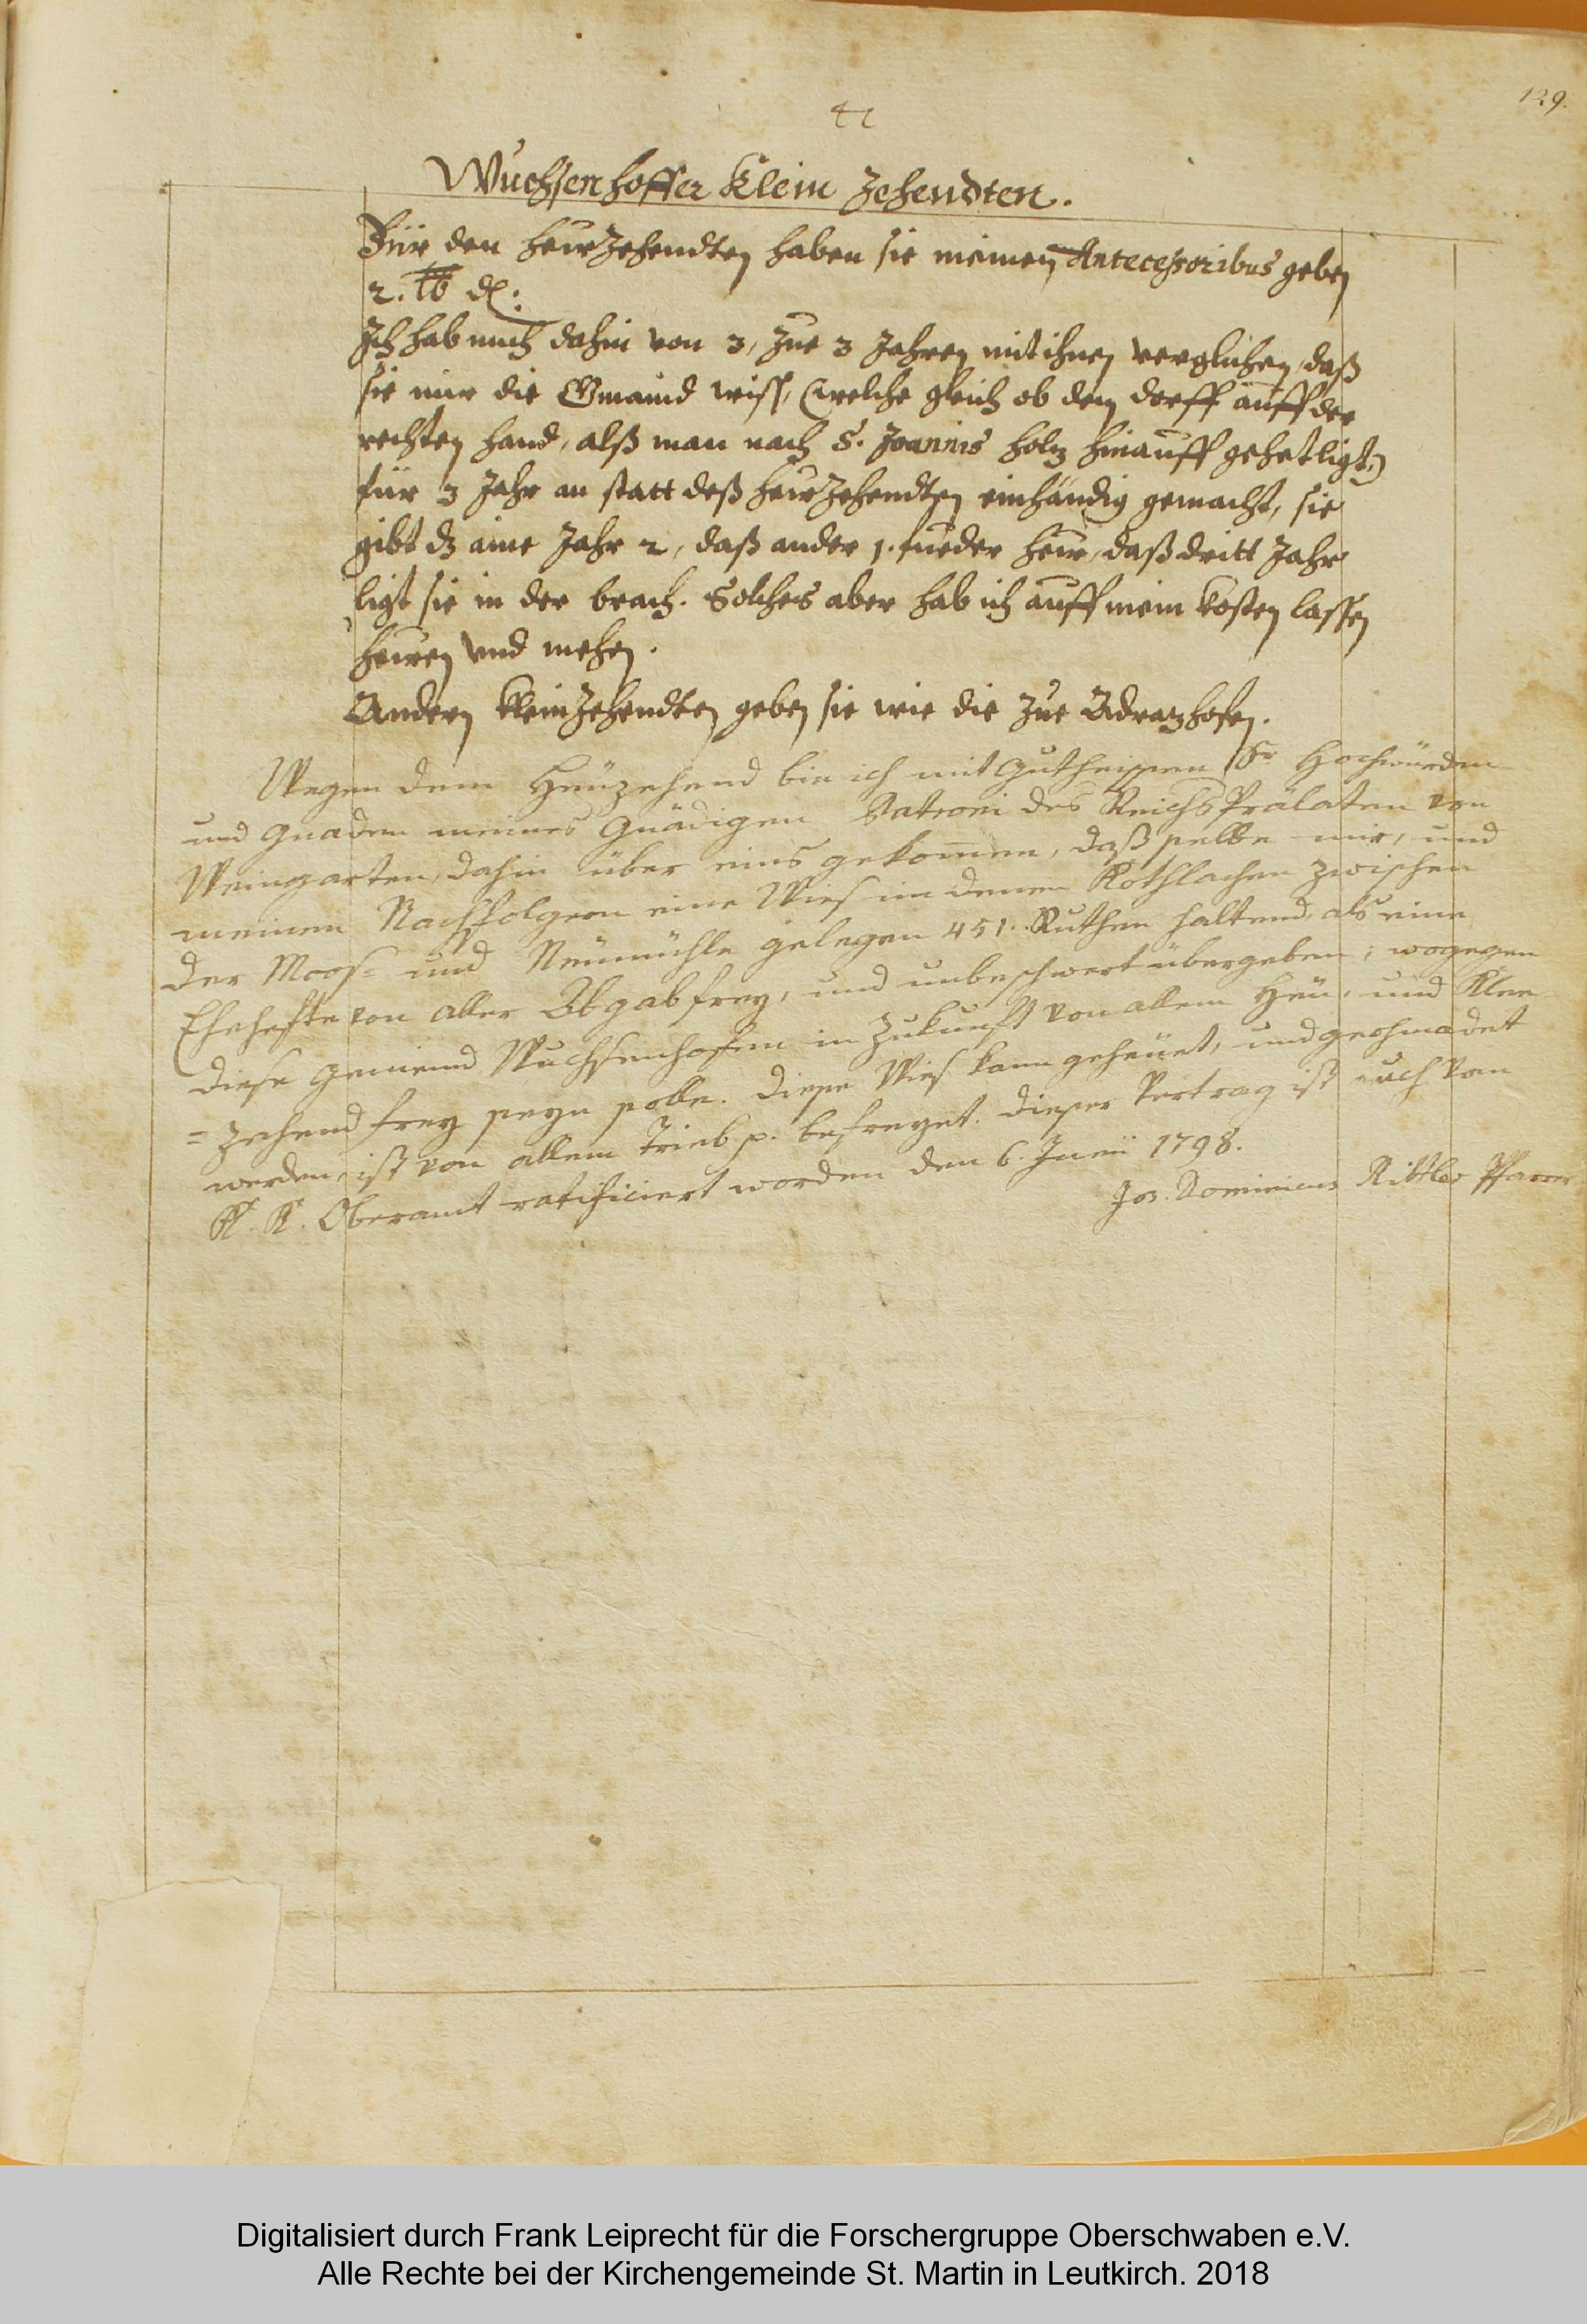 129.
Wuchsenhoffer Klein Zehendten.
Für den hew Zehendten haben sie meinen Antecessoribus geben
2. lb dl:
Ich hab mich dahin von 3, zue 3 Jahren mit ihnen verglichen, daß
sie mir die Gmaind wiß, (welche gleich ob dem dorff auff der
rechten hand, alß man nach S. Joannis holtz hinauff gehet ligt)
für 3 Jahr an statt deß hew Zehendten einhändig gemacht, sie
gibt dz aine Jahr 2, daß ander 1. fueder hew, daß dritt Jahr
ligt sie in der brach. Solches aber hab ich auff mein kosten lassen
hewen und mehen.
Andern klein Zehendten geben sie wie die zue Adratzhofen.
Wegen dem Heüzehend bin ich mit Gutheissen Sr Hochwürden
und Gnaden meines Gnädigen Patroni des Reichs Prälaten von
Weingarten, dahin über eins gekommen, daß selbe mir, und
meinen Nachfolgern eine Wies in denen Rothlachen zwischen
der Moos= und Neümühle gelegen 451. Ruthen haltend, als eine
Ehehefte von aller Abgab frey, und unbeschwert übergeben; wogegen
diese Gemeind Wuchsenhofen in Zukunft von allem Heü, und Klee
=zechend frey seyn solle. Diese Wies kann geheüet, und geohmadet
werden, ist von allem Trieb p. befreyet. Dieser Vertrag ist auch vom
K. K. Oberamt ratificiert worden den 6. Junii 1798.
Jos. Dominicus Rittler Pfarrer
Digitalisiert durch Frank Leiprecht für die Forschergruppe Oberschwaben e.V.
Alle Rechte bei der Kirchengemeinde St. Martin in Leutkirch. 2018